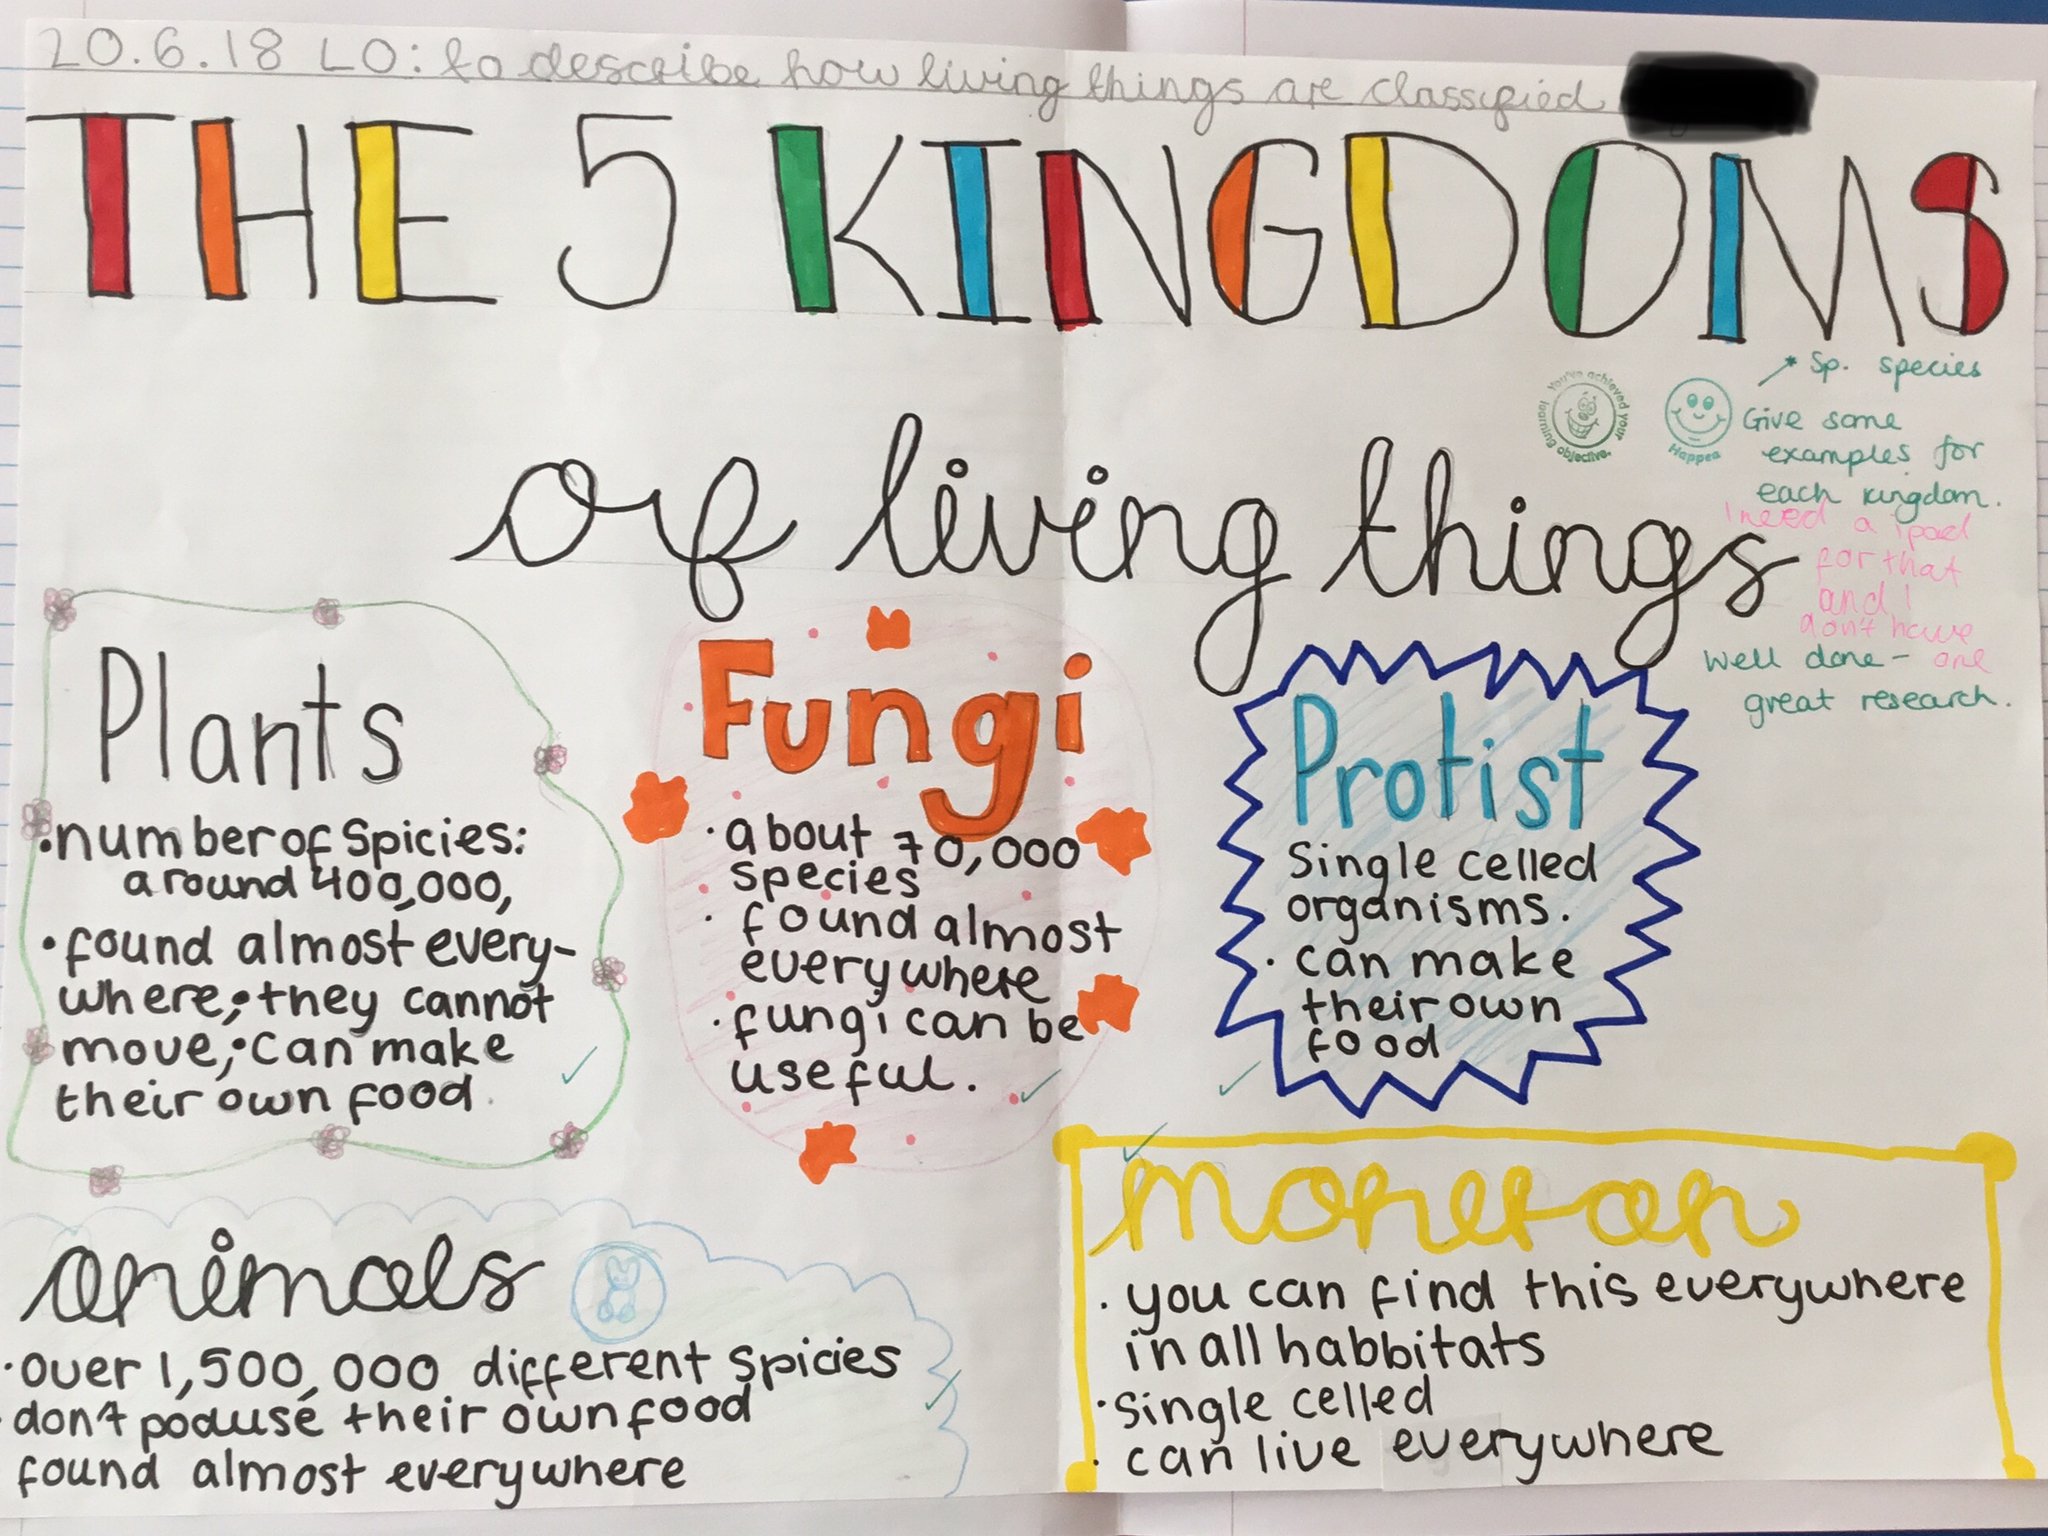 20.6.18 LO: to describe how living things are classified
THE 5 KINGDOMS
of living things
You've achieved your learning objective.
Happea
Sp. species
Give some
examples for
each kingdom.
I need a ipad
for that
and I
don't have
one
Well done -
great research.
Plants
• number of Spicies:
around 400,000,
• found almost every-
where; • they cannot
move; • can make
their own food.
Fungi
· about 70,000
species
· found almost
everywhere
· fungi can be
useful.
Protist
Single celled
organisms.
· can make
their own
food
animals
· over 1,500,000 different Spicies
· don't poduse their own food
found almost everywhere
moneran
· you can find this everywhere
in all habbitats
· Single celled
· can live everywhere